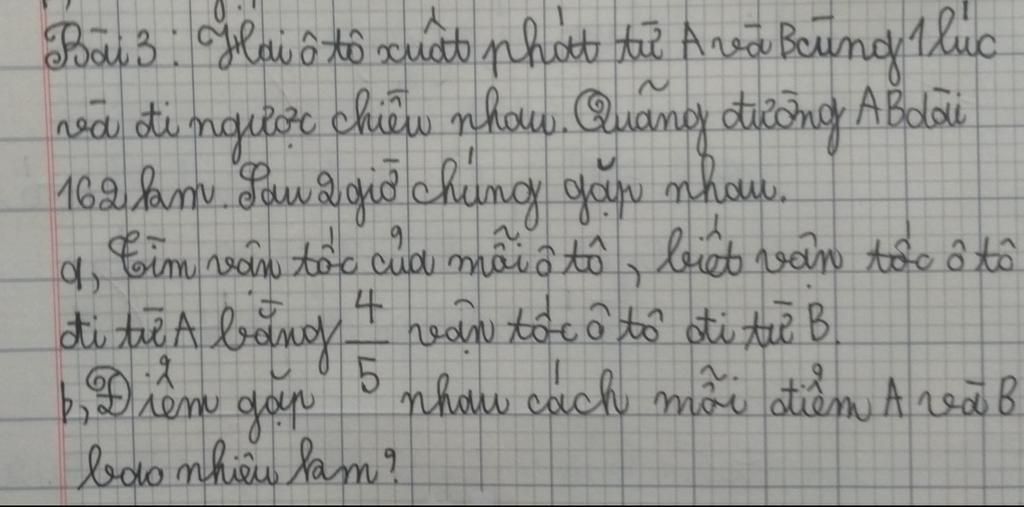 Bài 3: Hai ô tô xuất phát từ A và B cùng 1 lúc
và đi ngược chiều nhau. Quãng đường AB dài
162 km. Sau 2 giờ chúng gặp nhau.
a, Tìm vận tốc của mỗi ô tô, biết vận tốc ô tô
đi từ A bằng 4/5 vận tốc ô tô đi từ B.
b, Điểm gặp nhau cách mỗi điểm A và B
bao nhiêu km?